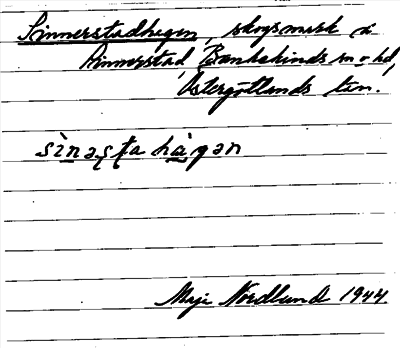 Sinnerstadhagen, skogsmark i
Sinnerstad Bankekinds sn o hd,
Östergötlands län.
sìnəşţa hàgən
Maji Nordlund 1944.